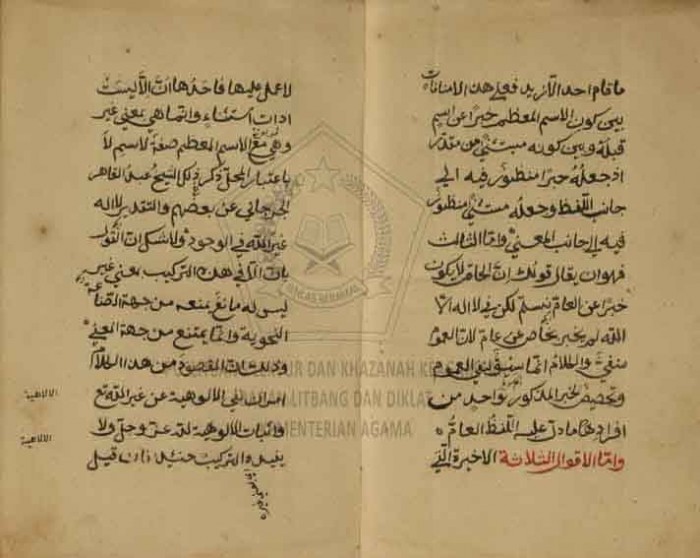 ما قام احد الا زيد فعلى هذا لا منافات
بين كون الاسم المعظم خبرًا عن اسم
قبله وبين كونه مستثنى من مقدر
اذ جعله خبرا منظور فيه الى
جانب اللفظ وجعله مستثنى منظور
فيه الى جانب المعنى واما الثالث
فهو ان يقال قولك ان الخاص لا يكون
خبرًا عن العام نسلم لكن في لا اله الا
الله لم يخبر بخاص عن عام لان العموم
منفي والكلام انما سيق لنفي العموم
وتخصيص الخبر المذكور بواحد من
افراد ما دل عليه اللفظ العام
واما الاقوال الثلاثة الاخيرة التي
لا عمل عليها فاحدها ان الا ليست
ادات استثناء وانما هي بمعنى غير
وهي مع الاسم المعظم صفة لاسم لا
باعتبار المحل ذكر ذلك الشيخ عبد القاهر
الجرجاني عن بعضهم والتقدير لا اله
غير الله في الوجود ولا شك ان القول
بان الا في هذا التركيب بمعنى غير
ليس له مانع يمنعه من جهة الصناعة
النحوية وانما يمتنع من جهة المعنى
وذلك ان المقصود من هذا الكلام
امران نفي الالوهية عن غير الله تع
واثبات الالوهية لله عز وجل ولا
يفيد التركيب حينئذ فان قيل
الالاهية
الالاهية
DAN KHAZANAH
LITBANG DAN DIKLAT
KEMENTERIAN AGAMA